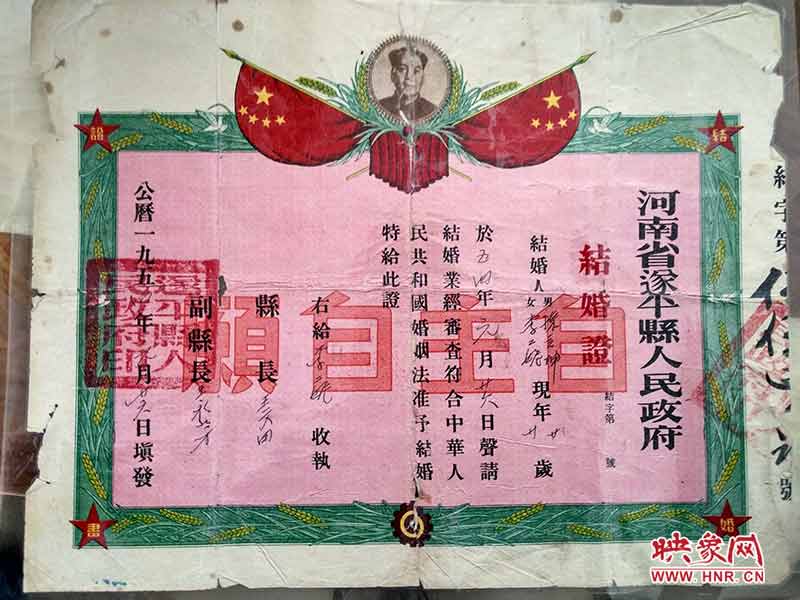 結
證
婚
書
河南省遂平縣人民政府
結婚證
結字第 號
結婚人 男 女 李二 現年 廿 歲
於五四年元月廿六日聲請
結婚業經審查符合中華人
民共和國婚姻法准予結婚
特給此證
右給 收執
縣長
副縣長
公曆一九五 年 月廿六日填發
自主自願
結字第 號
映象网
WWW.HNR.CN